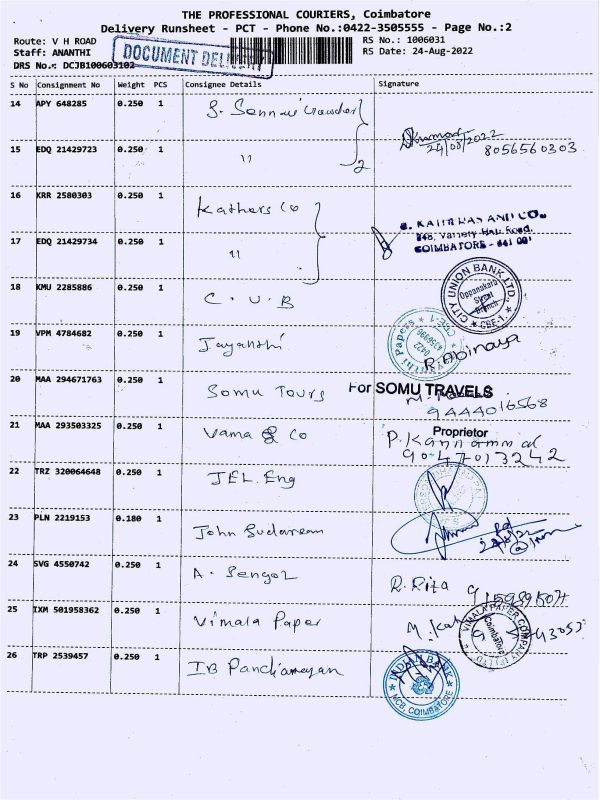 THE PROFESSIONAL COURIERS, Coimbatore
Delivery Runsheet - PCT - Phone No.:0422-3505555 - Page No.:2
Route: V H ROAD
RS No.: 1006031
Staff: ANANTHI
DOCUMENT DELIVERY
RS Date: 24-Aug-2022
DRS No.: DCJB100603102
S No Consignment No Weight PCS Consignee Details Signature
14 APY 648285 0.250 1
24/08/2022
15 EDQ 21429723 0.250 1 " 2 8056560303
16 KRR 2580303 0.250 1 Kathers Co
COIMBATORE - 641 001
17 EDQ 21429734 0.250 1 "
18 KMU 2285886 0.250 1 C.U.B
CITY UNION BANK LTD., Oppanakara Street Branch CBE-1
19 VPM 4784682 0.250 1 Jayanthi R. Abinaya
20 MAA 294671763 0.250 1 Somu Tours For SOMU TRAVELS
9444016568
Proprietor
21 MAA 293503325 0.250 1 Vama & Co P. Kannammal
9047013242
22 TRZ 320064648 0.250 1 JEL Eng
23 PLN 2219153 0.180 1 John
24 SVG 4550742 0.250 1 A. R. Rita
25 IXM 501958362 0.250 1 Vimala Paper
VIMALA PAPER COMPANY Coimbatore
26 TRP 2539457 0.250 1 IB
INDIAN BANK MCB, COIMBATORE